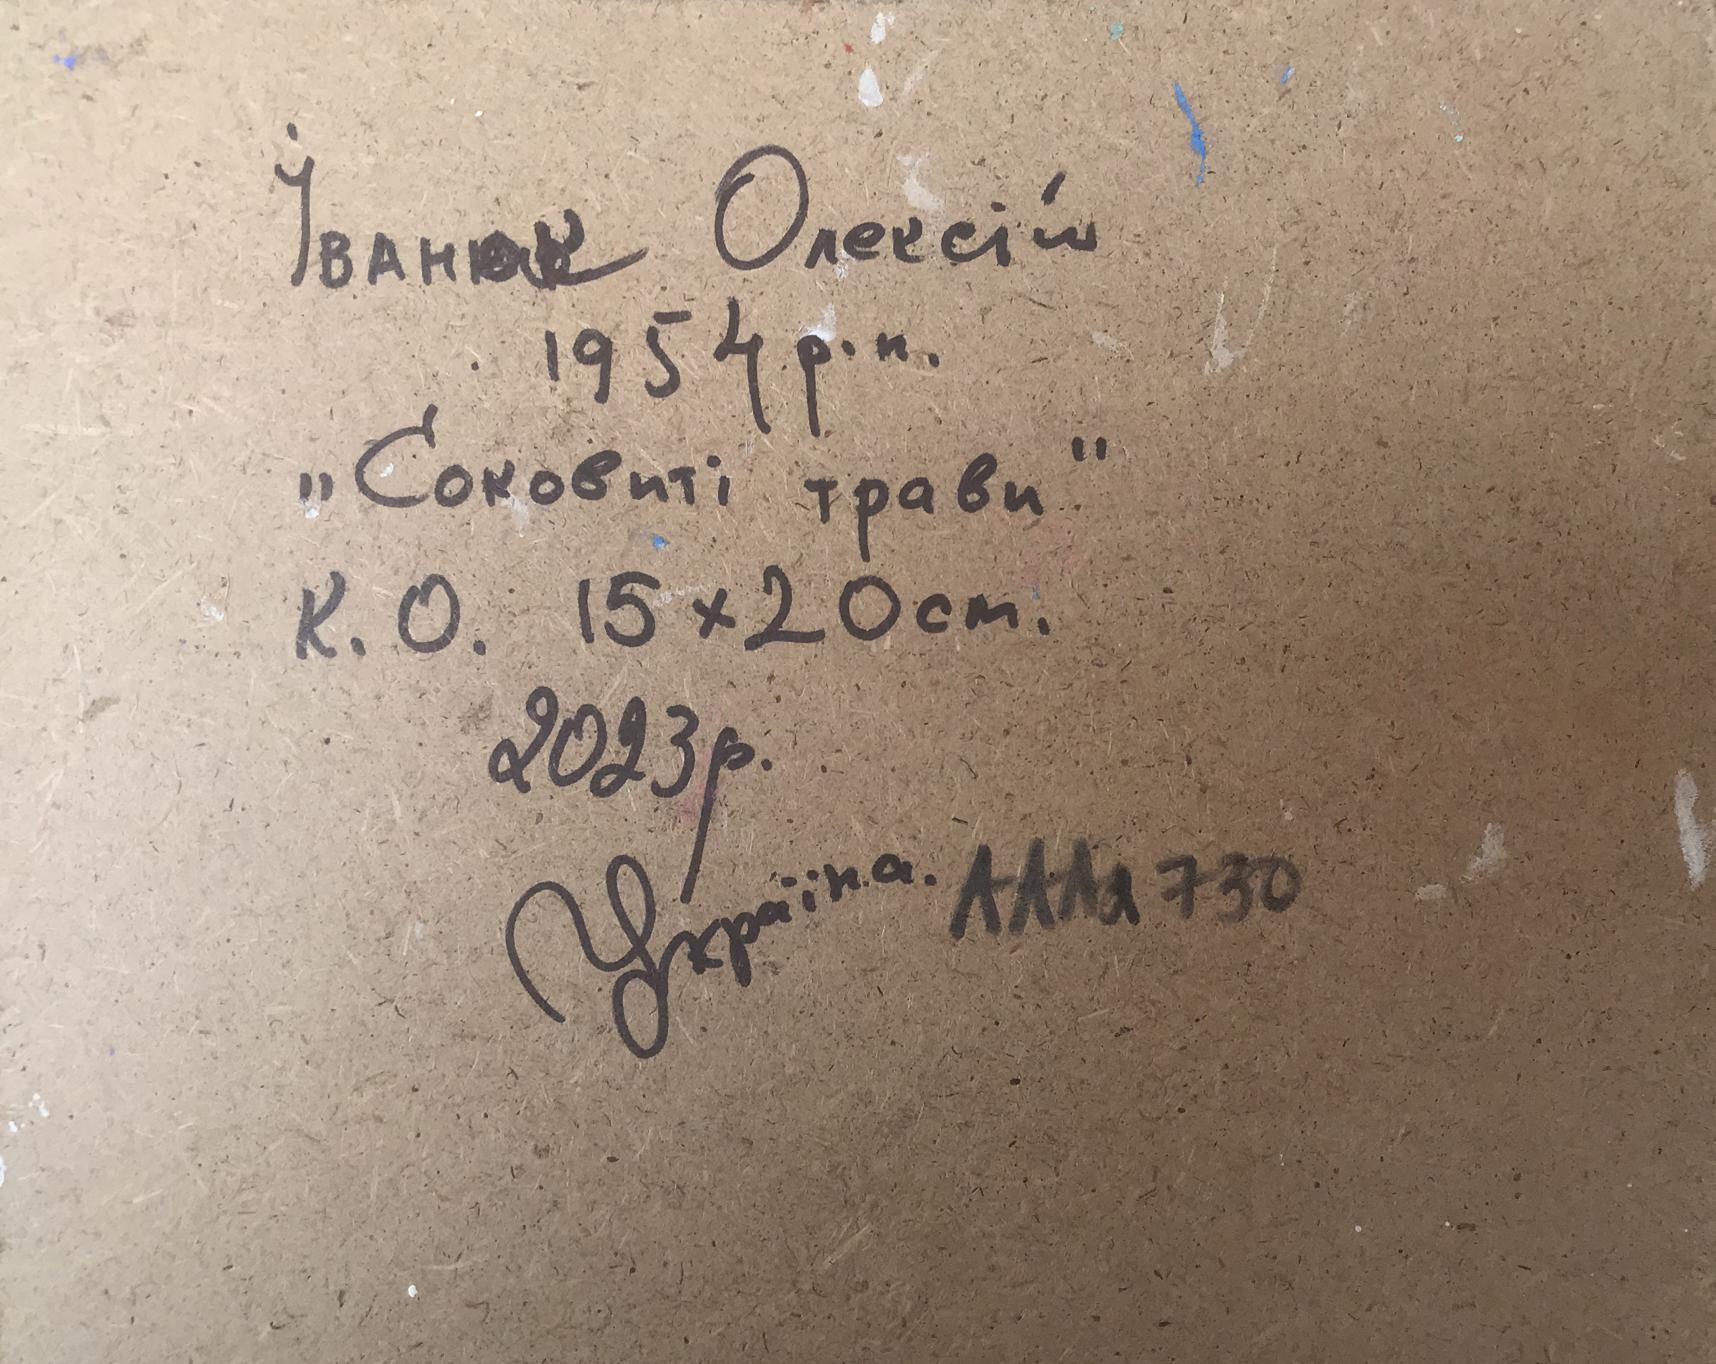 Іванюк Олексій
1954 р.н.
"Соковиті трави"
К.О. 15x20см.
2023р.
Україна. АААа 730